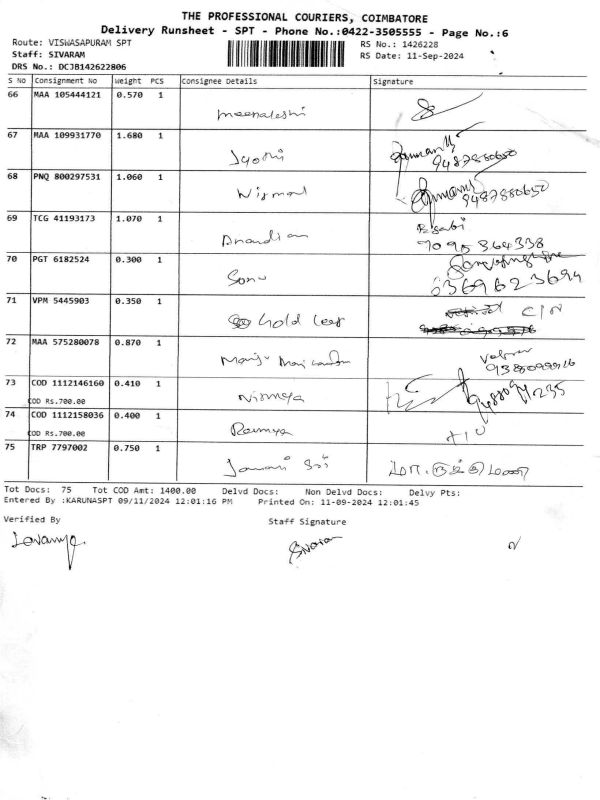 THE PROFESSIONAL COURIERS, COIMBATORE
Delivery Runsheet - SPT - Phone No.:0422-3505555 - Page No.:6
Route: VISWASAPURAM SPT RS No.: 1426228
Staff: SIVARAM RS Date: 11-Sep-2024
DRS No.: DCJB142622806
S No Consignment No Weight PCS Consignee Details Signature
66 MAA 105444121 0.570 1
meenakshi
67 MAA 109931770 1.680 1
Jyothi 9487880650
68 PNQ 800297531 1.060 1
Nirmal 9487880650
69 TCG 41193173 1.070 1
Anandian
9095364338
70 PGT 6182524 0.300 1
Sonu 6369623694
71 VPM 5445903 0.350 1
Gold Leaf C/N
72 MAA 575280078 0.870 1
Manju
73 COD 1112146160 0.410 1
COD Rs.700.00 Nirmeya
74 COD 1112158036 0.400 1
COD Rs.700.00 Ramya
75 TRP 7797002 0.750 1
Tot Docs: 75 Tot COD Amt: 1400.00 Delvd Docs: Non Delvd Docs: Delvy Pts:
Entered By :KARUNASPT 09/11/2024 12:01:16 PM Printed On: 11-09-2024 12:01:45
Verified By Staff Signature
Lavanya Sivaram